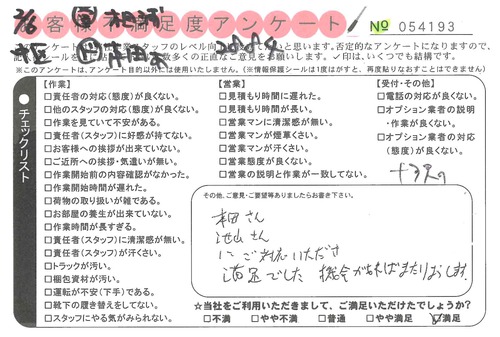 お客様不満足度アンケート
No 054193
※このアンケートは、アンケート目的以外には使用いたしません。(※情報保護シールは1度がすと、再度貼りなおすことはできません)
チェックリスト
【作業】
□責任者の対応(態度)が良くない。
□他のスタッフの対応(態度)が良くない。
□作業を見ていて不安がある。
□責任者(スタッフ)に好感が持てない。
□お客様への挨拶が出来ていない。
□ご近所への挨拶・気遣いが無い。
□作業開始前の内容確認がなかった。
□作業開始時間が遅れた。
□荷物の取り扱いが雑である。
□お部屋の養生が出来ていない。
□作業時間が長すぎる。
□責任者(スタッフ)に清潔感が無い。
□責任者(スタッフ)が汗くさい。
□トラックが汚い。
□梱包資材が汚い。
□運転が不安(下手)である。
□靴下の履き替えをしてない。
□スタッフにやる気がみられない。
【営業】
□見積もり時間に遅れた。
□見積もり時間が長い。
□営業マンに清潔感が無い。
□営業マンが煙草くさい。
□営業マンが汗くさい。
□営業態度が良くない。
□営業の説明と作業が一致してない。
【受付・その他】
□電話の対応が良くない。
□オプション業者の説明
・作業が良くない。
□オプション業者の対応
(態度)が良くない。
その他、ご意見・ご要望等ありましたらお書き下さい。
本田さん
池山さん
にご対応いただき
満足でした 機会があればまたお願いします。
☆当社をご利用いただきまして、ご満足いただけてでしょうか?
□不満 □やや不満 □普通 □やや満足 ☑満足